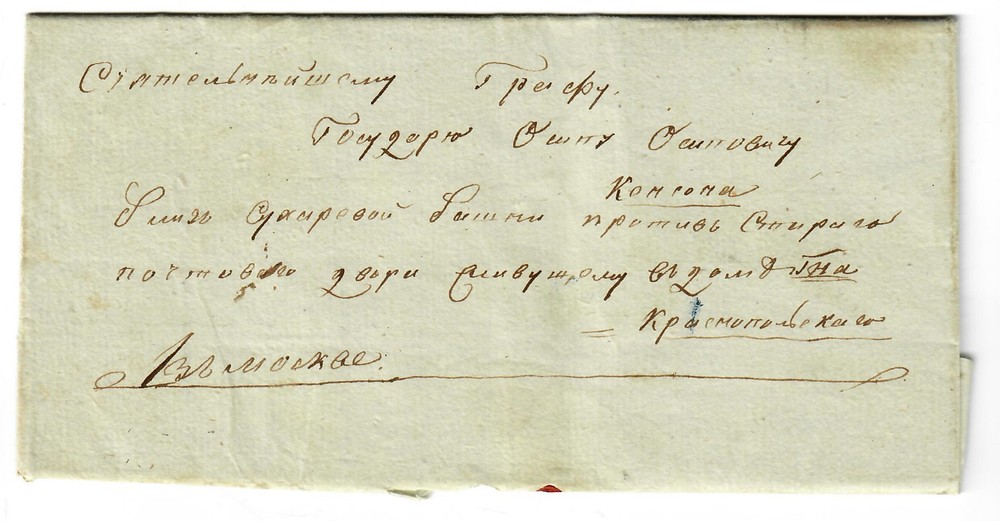 Сиятельнѣйшему Графу.
Государю Осипу Осиповичу
Кенсона
близь Сухаревой башни противъ Стараго
почтоваго двора живущему въ домѣ Гна
= Краснопольскаго
Въ Москве.